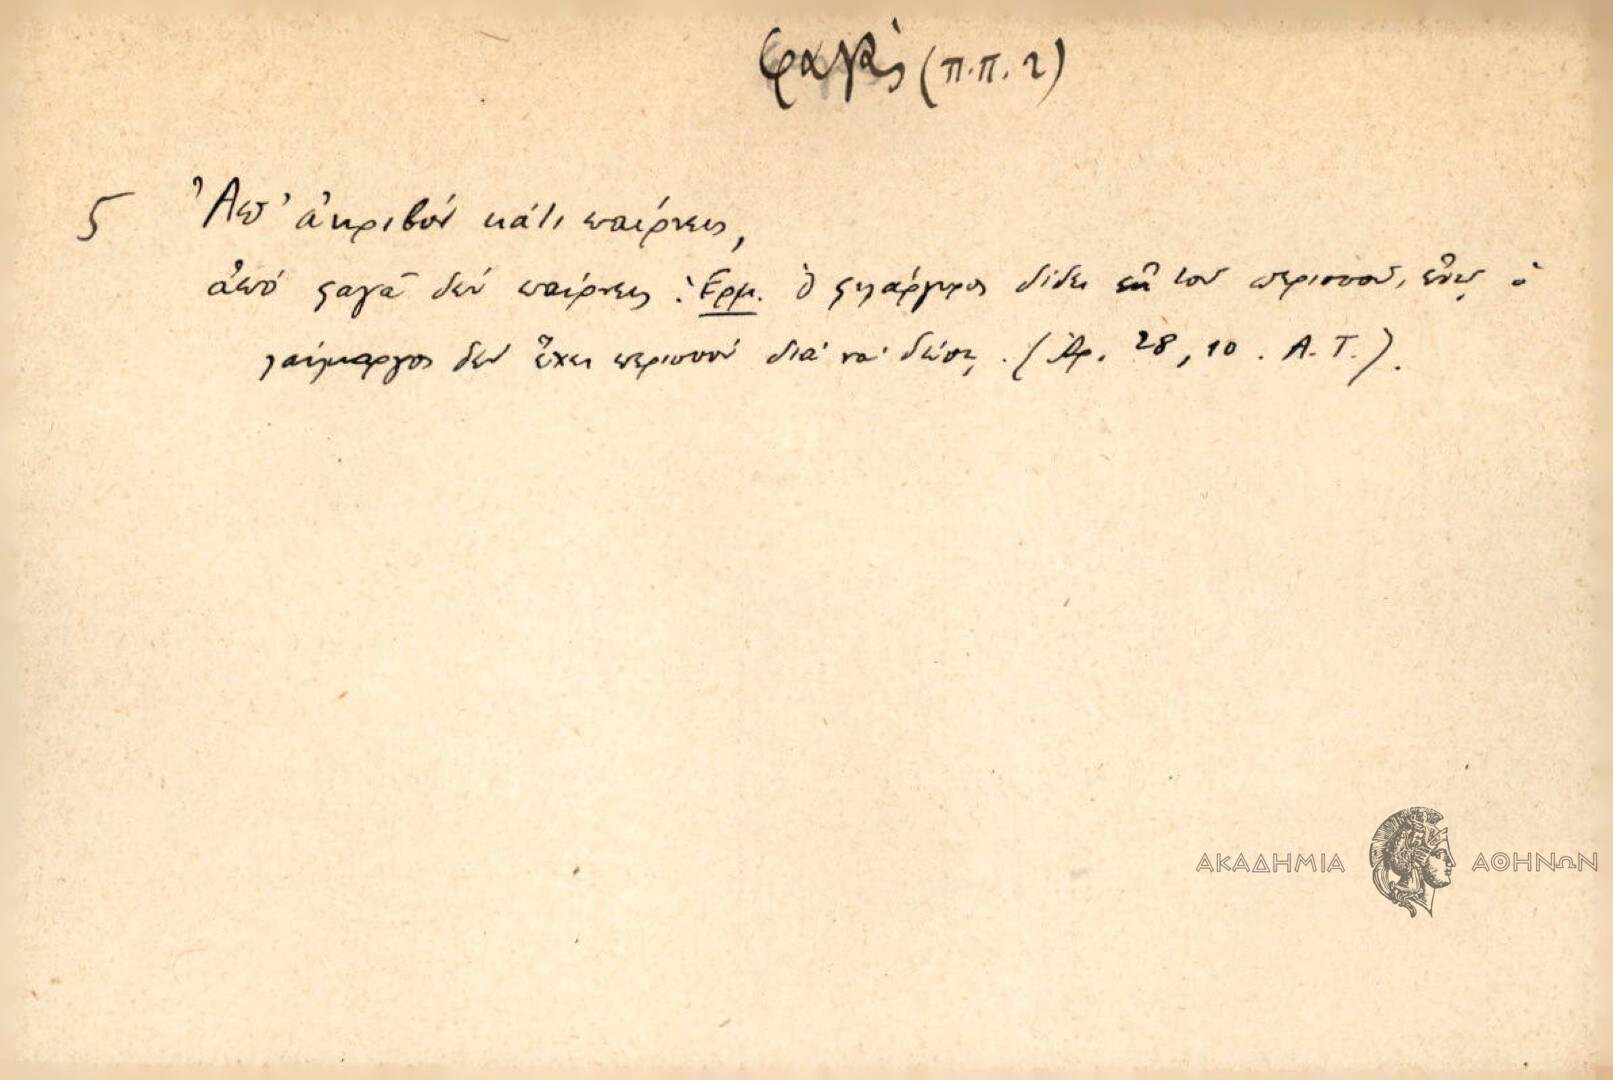 φαγᾶς (π.π. 2)
5 Ἀπ' ἀκριβόν κάτι παίρνεις,
ἀπό φαγᾶ δέν παίρνεις. Ἑρμ. Ὁ φιλάργυρος δίδει ἐκ τοῦ περισσοῦ, ἐνῷ ὁ
λαίμαργος δέν ἔχει περισσόν διά νά δώσῃ. (Ἀρ. 28, 10. Α.Τ.).
ΑΚΑΔΗΜΙΑ ΑΘΗΝΩΝ